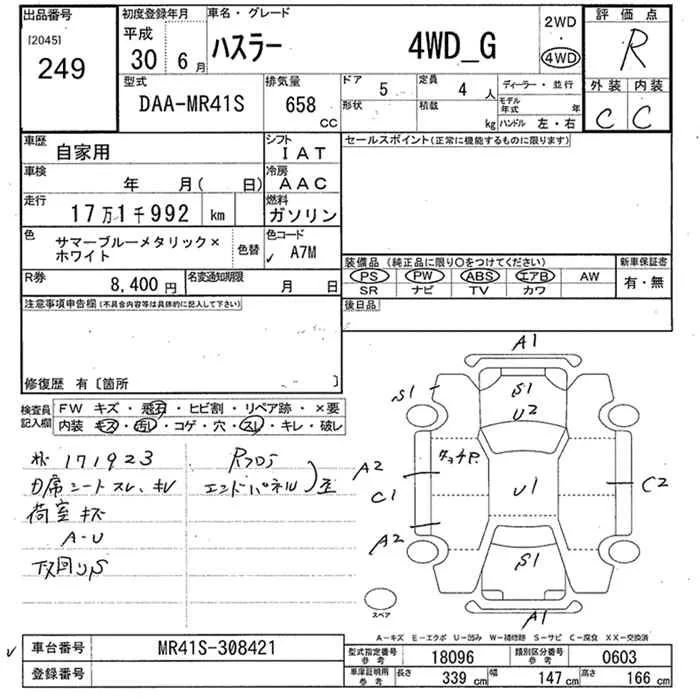 出品番号
[2045]
249
初度登録年月
平成
30年 6月
車名・グレード
ハスラー 4WD_G
2WD
・
4WD
評価点
R
外装 内装
C C
型式
DAA-MR41S
排気量
658
CC
ドア 5
定員 4 人
形状
積載 kg
ディーラー・並行
モデル年式 年
ハンドル 左・右
車歴
自家用
シフト
IAT
車検
年 月( 日)
冷房
AAC
走行
17万1千992 km
燃料
ガソリン
色
サマーブルーメタリック×
ホワイト
色替
色コード
✓ A7M
R券
8,400 円
名変通知期限
月 日
セールスポイント(正常に機能するものに限ります)
装備品(純正品に限り○をつけてください)
新車保証書
PS PW ABS エアB AW
有・無
SR ナビ TV カワ
後日品
注意事項申告欄(不具合内容等は具体的に記入して下さい)
修復歴 有〔箇所 〕
検査員
記入欄
FW キズ・飛石・ヒビ割・リペア跡・×要
内装・キズ・汚れ・コゲ・穴・スレ・キレ・破レ
171923
シートスレ、キレ
荷室キズ
A-U
下回りS
Rフロア
エンドパネル
A1
S1
S1
U2
タッチP.
A2
C1
A2
U1
C2
S1
A1
スペア
A－キズ E－エクボ U－凹み W－補修跡 S－サビ C－腐食 XX－交換済
車台番号
MR41S-308421
登録番号
型式指定番号
参考
18096
類別区分番号
参考
0603
車庫証明用
参考
長さ 339 cm
幅 147 cm
高さ 166 cm